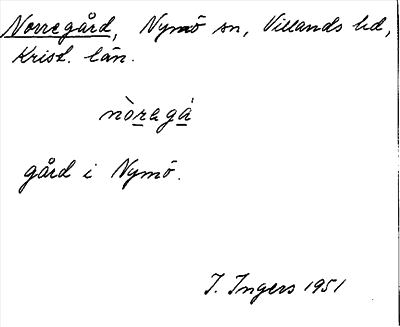 Norregård, Nymö sn, Villands hd,
Krist. län.
nòregá
gård i Nymö.
I. Ingers 1951